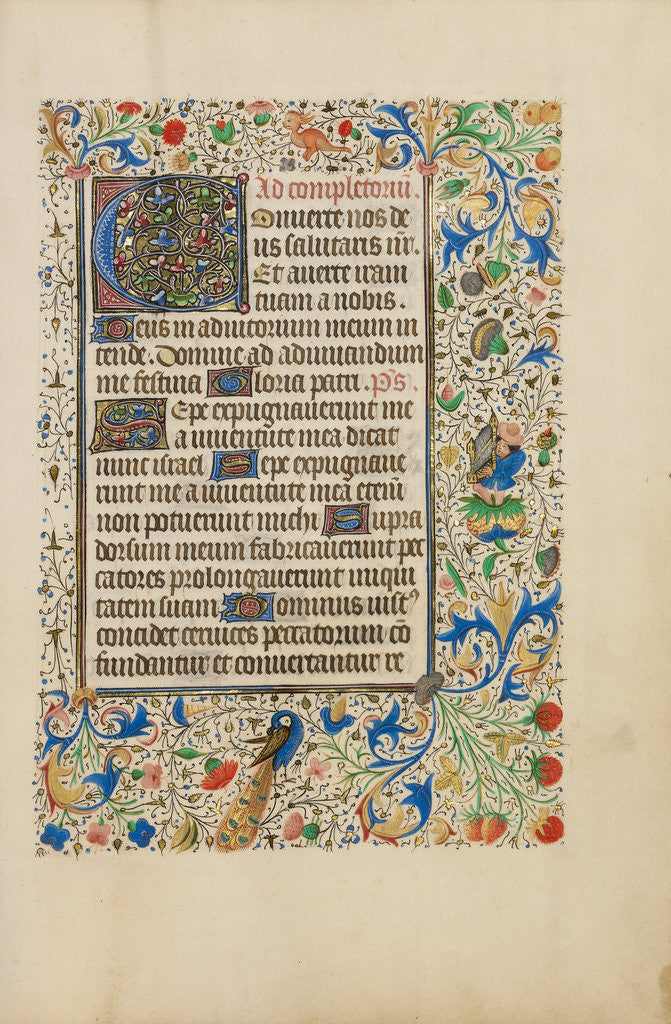 Ad completoriu̅.
Conuerte nos de
us salutaris nr̅.
Et auerte iram
tuam a nobis.
Deus in adiutorium meum in
tende. Domine ad adiuuandum
me festina Gloria patri. p̅s.
Sepe expugnauerunt me
a iuuentute mea dicat
nunc israel Sepe expugnaue
runt me a iuuentute mea eteni̅
non potuerunt michi Supra
dorsum meum fabricauerunt pec
catores prolongauerunt iniqui
tatem suam Dominus iustꝰ
concidet ceruices peccatorum co̅
fundantur et conuertantur re